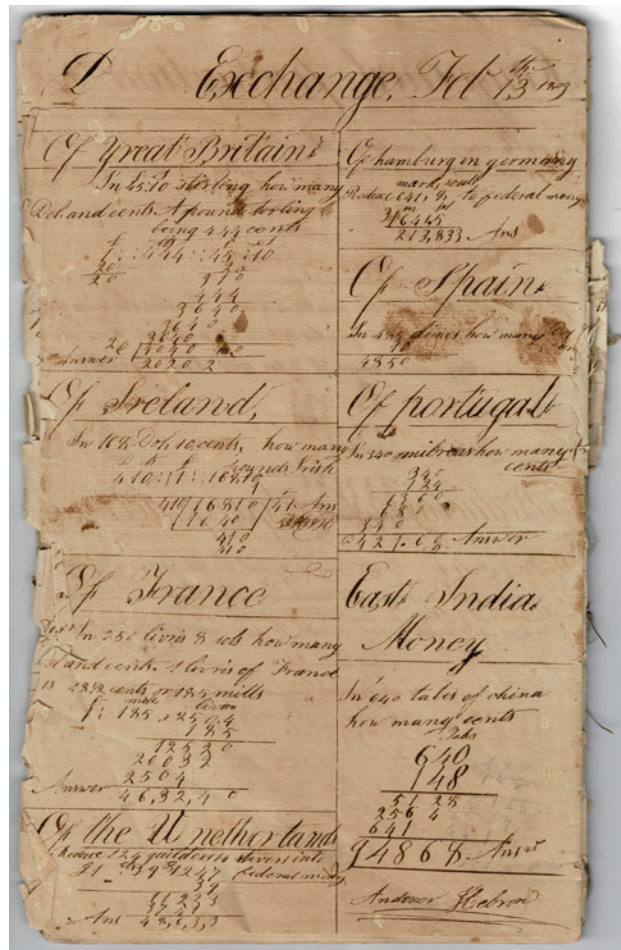 Exchange, Feb 13th 1809
Of Great Britain
In 45:10 sterling how many
Dol. and cents A pound sterling
being 444 cents
1 : 444 :: 45 : 10
20 20
20 910
444
3640
3640
3640
Answer 20202
Of Ireland,
In 168 Dol, 10 cents, how many
pounds Irish
410 : 1 :: 16810
410 | 16810 | 41 Ans
1640
410
410
Of France
In 250 livris 8 sols how many
Dol and cents 1 livris of France
is 18½ cents or 18.5 mills
mills livris
1 : 185 :: 250.4
185
12520
20032
2504
Answer 46,32,40
Of the U netherlands
Reduce 124 guilders 14 stivers into
federal money
39
11223
3741
Ans 48,6,3,3
Of hamburg in germany
mark, souls
Reduce 641, 8, to federal money
3|6415
213,833 Ans
Of Spain
In 485 how many
10
4850
Of portugal
In 340 milreas how many
cents
340
124
1360
680
340
42160 Answer
East India
Money
In 640 tales of china
how many cents
Tales
640
148
5128
2564
641
94868 Answ
Andover Hebron